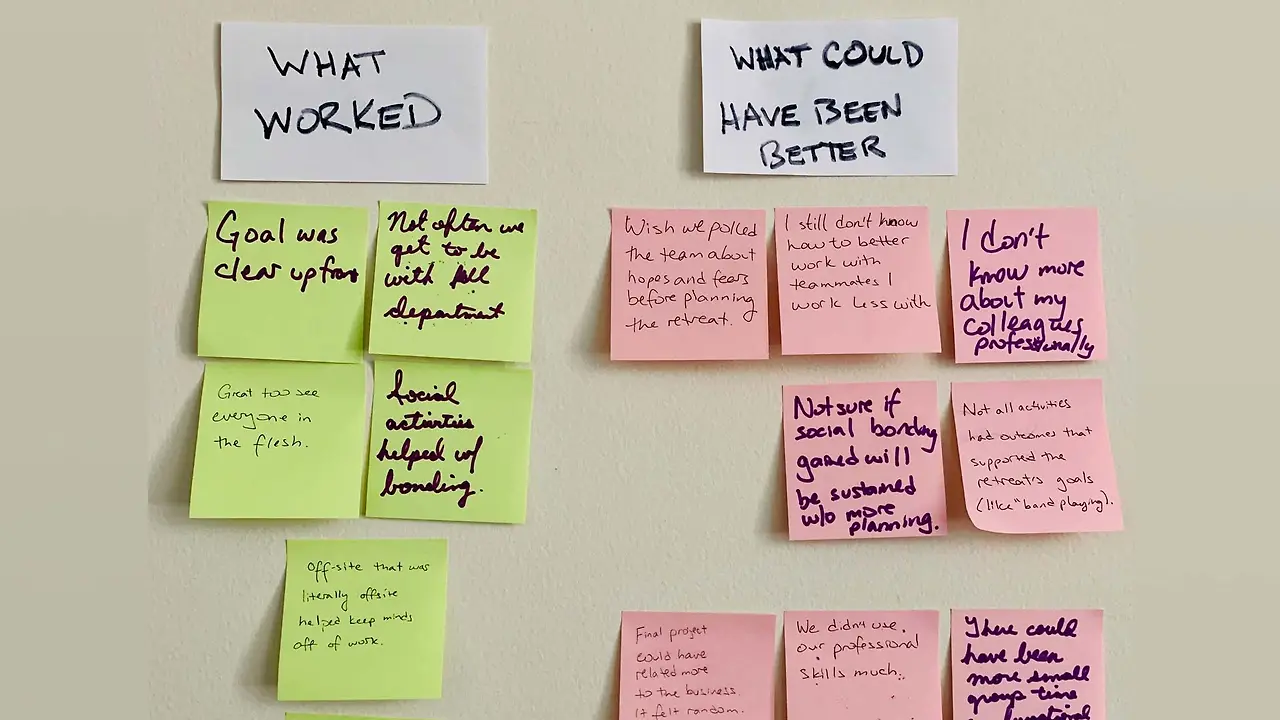 WHAT
WORKED
WHAT COULD
HAVE BEEN
BETTER
Goal was
clear upfront
Not often we
get to be
with full
department
Great too see
everyone in
the flesh.
Social
activities
helped w/
bonding.
Off-site that was
literally offsite
helped keep minds
off of work.
Wish we polled
the team about
hopes and fears
before planning
the retreat.
I still don't know
how to better
work with
teammates I
work less with
I don't
know more
about my
colleagues
professionally
Not sure if
social bonding
gained will
be sustained
w/o more
planning.
Not all activities
had outcomes that
supported the
retreat's goals
(like "band playing).
Final project
could have
related more
to the business.
It felt random.
We didn't use
our professional
skills much.
There could
have been
more small
group time